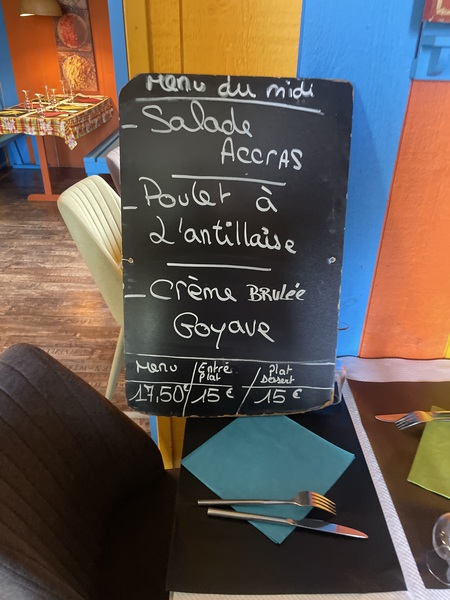 Menu du midi
- Salade
Accras
- Poulet à
L'antillaise
- Crème BRULÉE
Goyave
Menu / Entré Plat / Plat Dessert
17,50€ / 15 € / 15 €